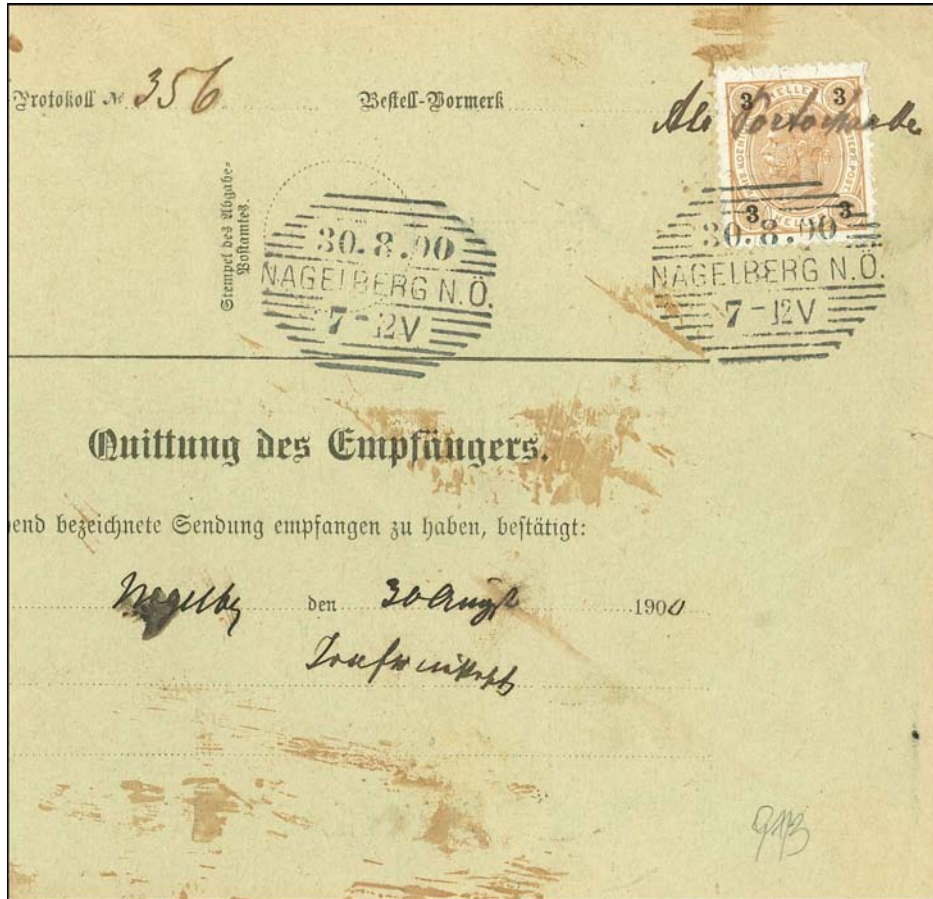 Protokoll № 356 Bestell-Vormerk
Als Portomarke
3 HELLER 3
3 HELLER 3
Stempel des Abgabe-
Postamtes.
30.8.00
NAGELBERG N.Ö.
7-12V
30.8.00
NAGELBERG N.Ö.
7-12V
Quittung des Empfängers.
end bezeichnete Sendung empfangen zu haben, bestätigt:
den 30 Augst 1900